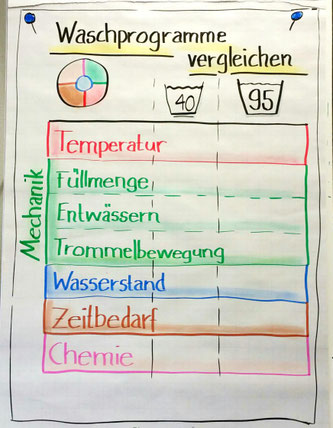 Waschprogramme
vergleichen
40
95
Mechanik
Temperatur
Füllmenge
Entwässern
Trommelbewegung
Wasserstand
Zeitbedarf
Chemie